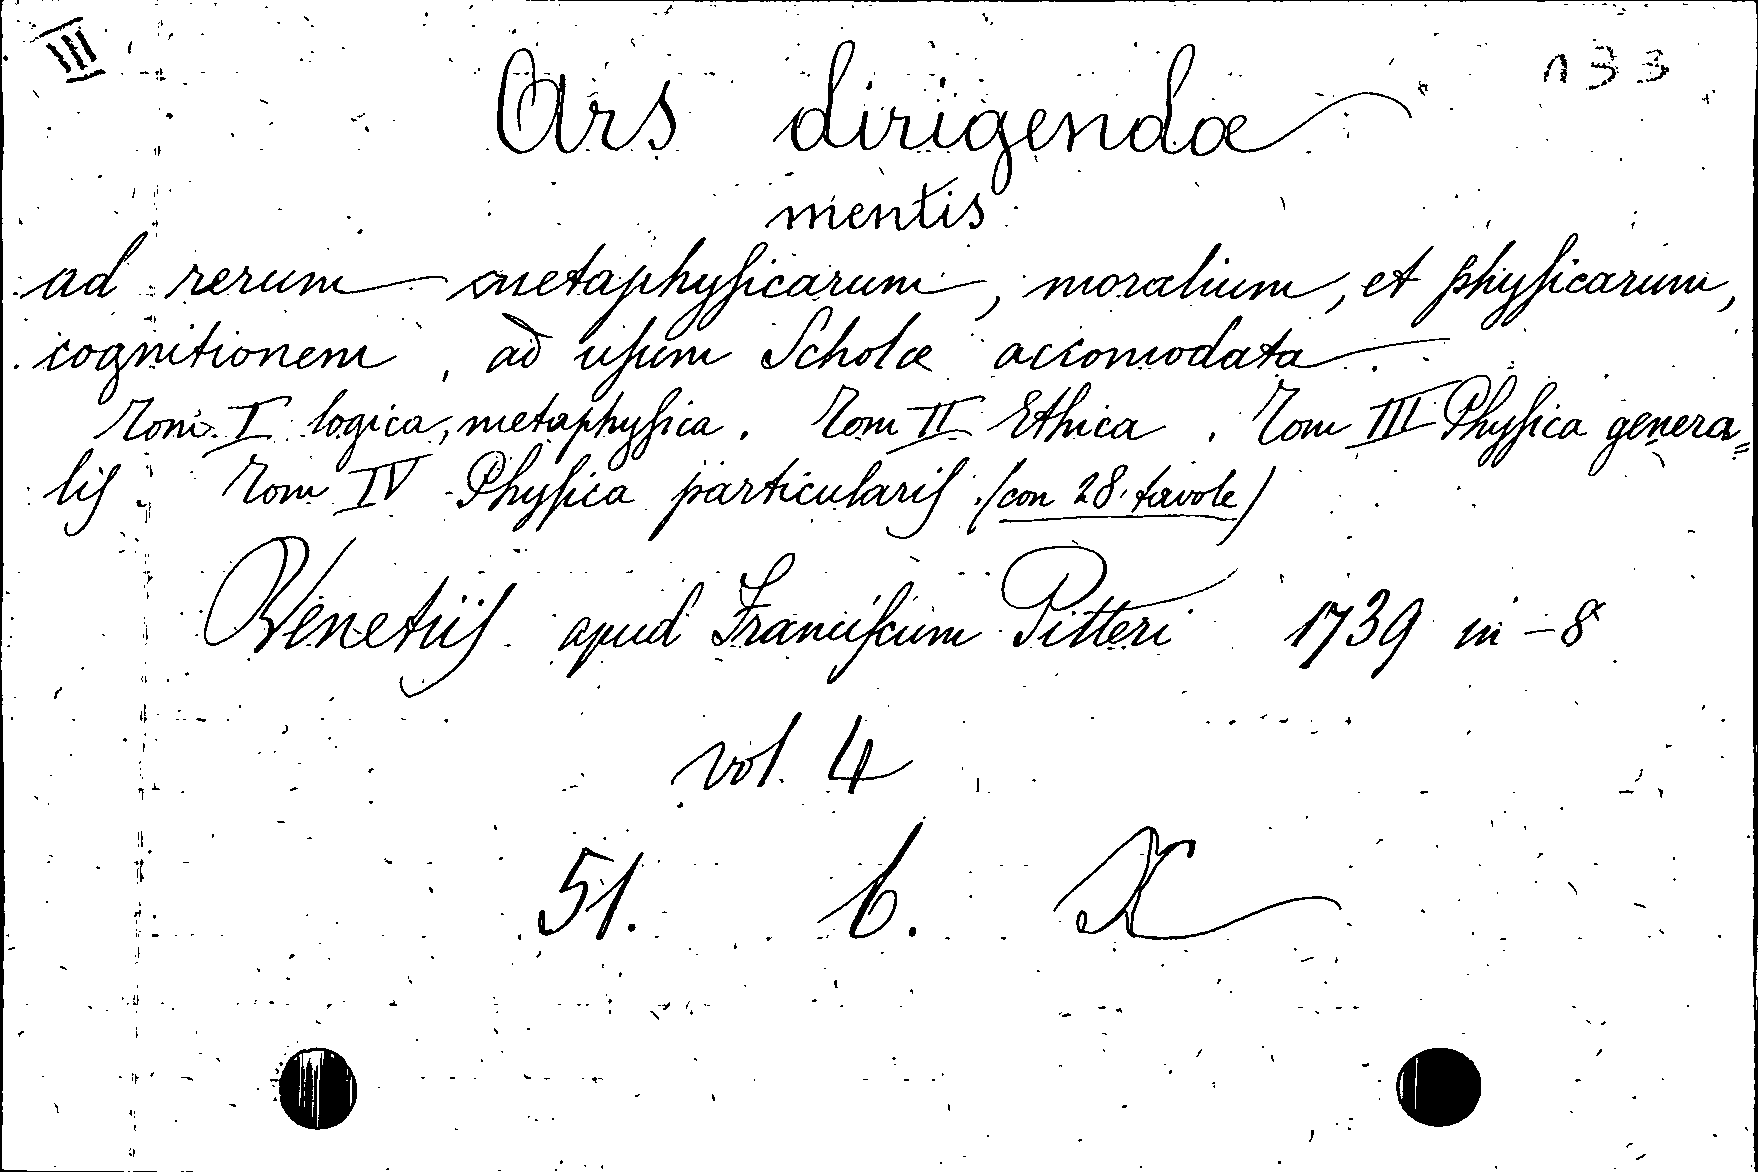 III
133
Ars dirigendæ
mentis
ad rerum metaphyſicarum, moralium, et phyſicarum,
cognitionem, ad uſum Scholæ accomodata
Tom. I logica, metaphyſica. Tom II Ethica. Tom III Phyſica genera=
lis. Tom IV Phyſica particularis (con 28. tavole)
Venetiis apud Franciſcum Pitteri 1739 in-8
vol. 4
51. b. X